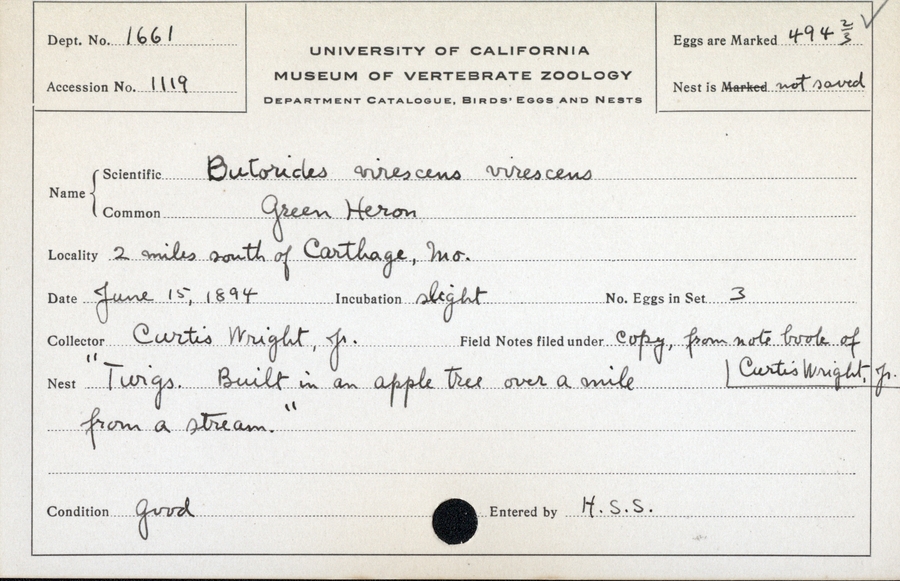 Dept. No. 1661
Accession No. 1119
UNIVERSITY OF CALIFORNIA
MUSEUM OF VERTEBRATE ZOOLOGY
DEPARTMENT CATALOGUE, BIRDS' EGGS AND NESTS
Eggs are Marked 494 2/3 ✓
Nest is Marked not saved
Name { Scientific Butorides virescens virescens
Common Green Heron
Locality 2 miles south of Carthage, Mo.
Date June 15, 1894 Incubation slight No. Eggs in Set 3
Collector Curtis Wright, Jr. Field Notes filed under copy, from note book of
Curtis Wright, Jr.
Nest "Twigs. Built in an apple tree over a mile
from a stream."
Condition good Entered by H.S.S.